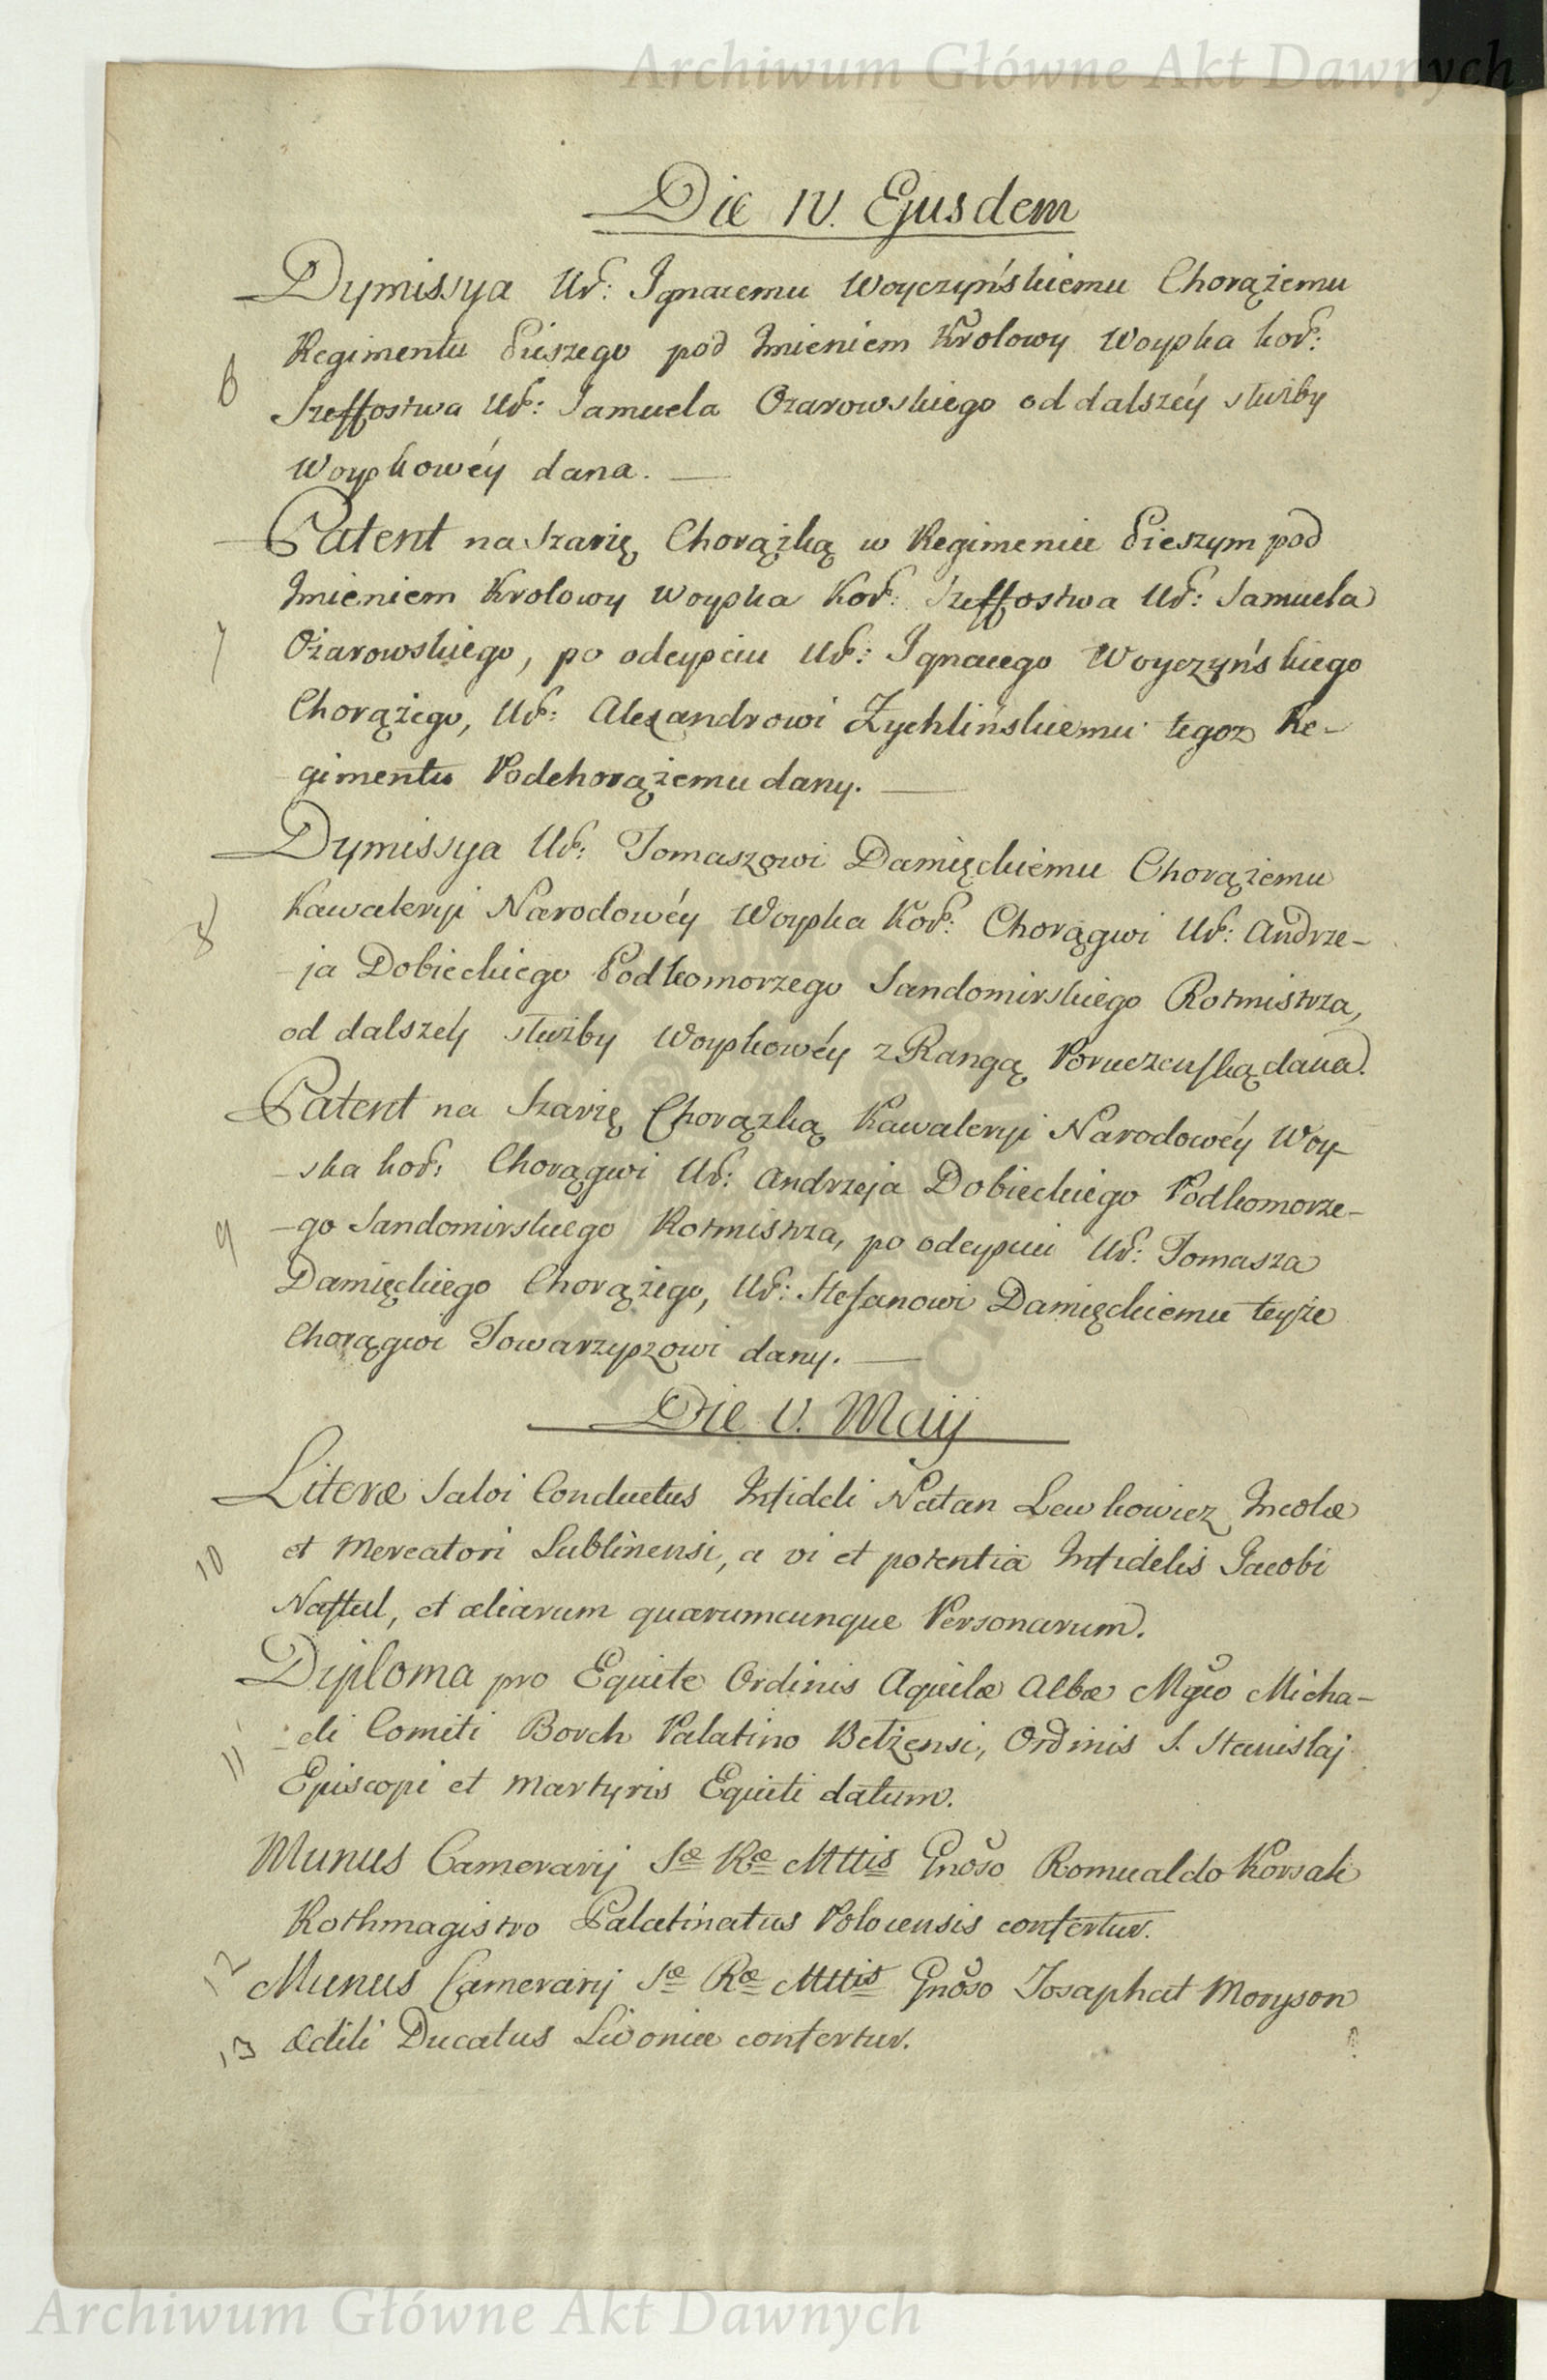 Archiwum Główne Akt Dawnych
Die IV. Ejusdem
Dymissya Ur: Ignacemu Woyczyńskiemu Chorążemu
Regimentu Pieszego pod Imieniem Krolowy Woyska kor:
6
Szeffostwa Ur: Samuela Ożarowskiego od dalszéy służby
Woyskowéy dana. —
Patent na Szarżę Chorążką w Regimencie Pieszym pod
Imieniem Krolowy Woyska Kor: Szeffostwa Ur: Samuela
7
Ożarowskiego, po odeyściu Ur: Ignacego Woyczyńskiego
Chorążego, Ur: Alexandrowi Żychlińskiemu tegoz Re-
gimentu Podchorążemu dany. —
Dymissya Ur: Tomaszowi Damięckiemu Chorążemu
8
Kawaleryi Narodowéy Woyska Kor: Chorągwi Ur: Andrze-
-ja Dobieckiego Podkomorzego Sandomirskiego Rotmistrza,
od dalszéy służby Woyskowéy z Rangą Poruczenską dana.
Patent na Szarżę Chorążką Kawaleryi Narodowéy Woy-
-ska kor: Chorągwi Ur: Andrzeja Dobieckiego Podkomorze-
9
-go Sandomirskiego Rotmistrza, po odeyściu Ur: Tomasza
Damięckiego Chorążego, Ur: Stefanowi Damięckiemu teyże
Chorągwi Towarzyszowi dany. —
Die V. Maij
Literæ Salvi Conductus Infideli Natan Lewkowicz Incolæ
10
et Mercatori Lublinensi, a vi et potentia Infidelis Jacobi
Naftul, et aliarum quarumcunque Personarum.
Diploma pro Equite Ordinis Aquilæ Albæ Mgco Micha-
11
-eli Comiti Borch Palatino Bełzensi, Ordinis S. Stanislaj
Episcopi et Martyris Equiti datum.
Munus Camerarij Sæ Ræ Mttis Gnoso Romualdo Korsak
Rothmagistro Palatinatus Polocensis confertur.
12
Munus Camerarij Sæ Ræ Mttis Gnoso Josaphat Moryson
13
Ædili Ducatus Livoniæ confertur.
Archiwum Główne Akt Dawnych